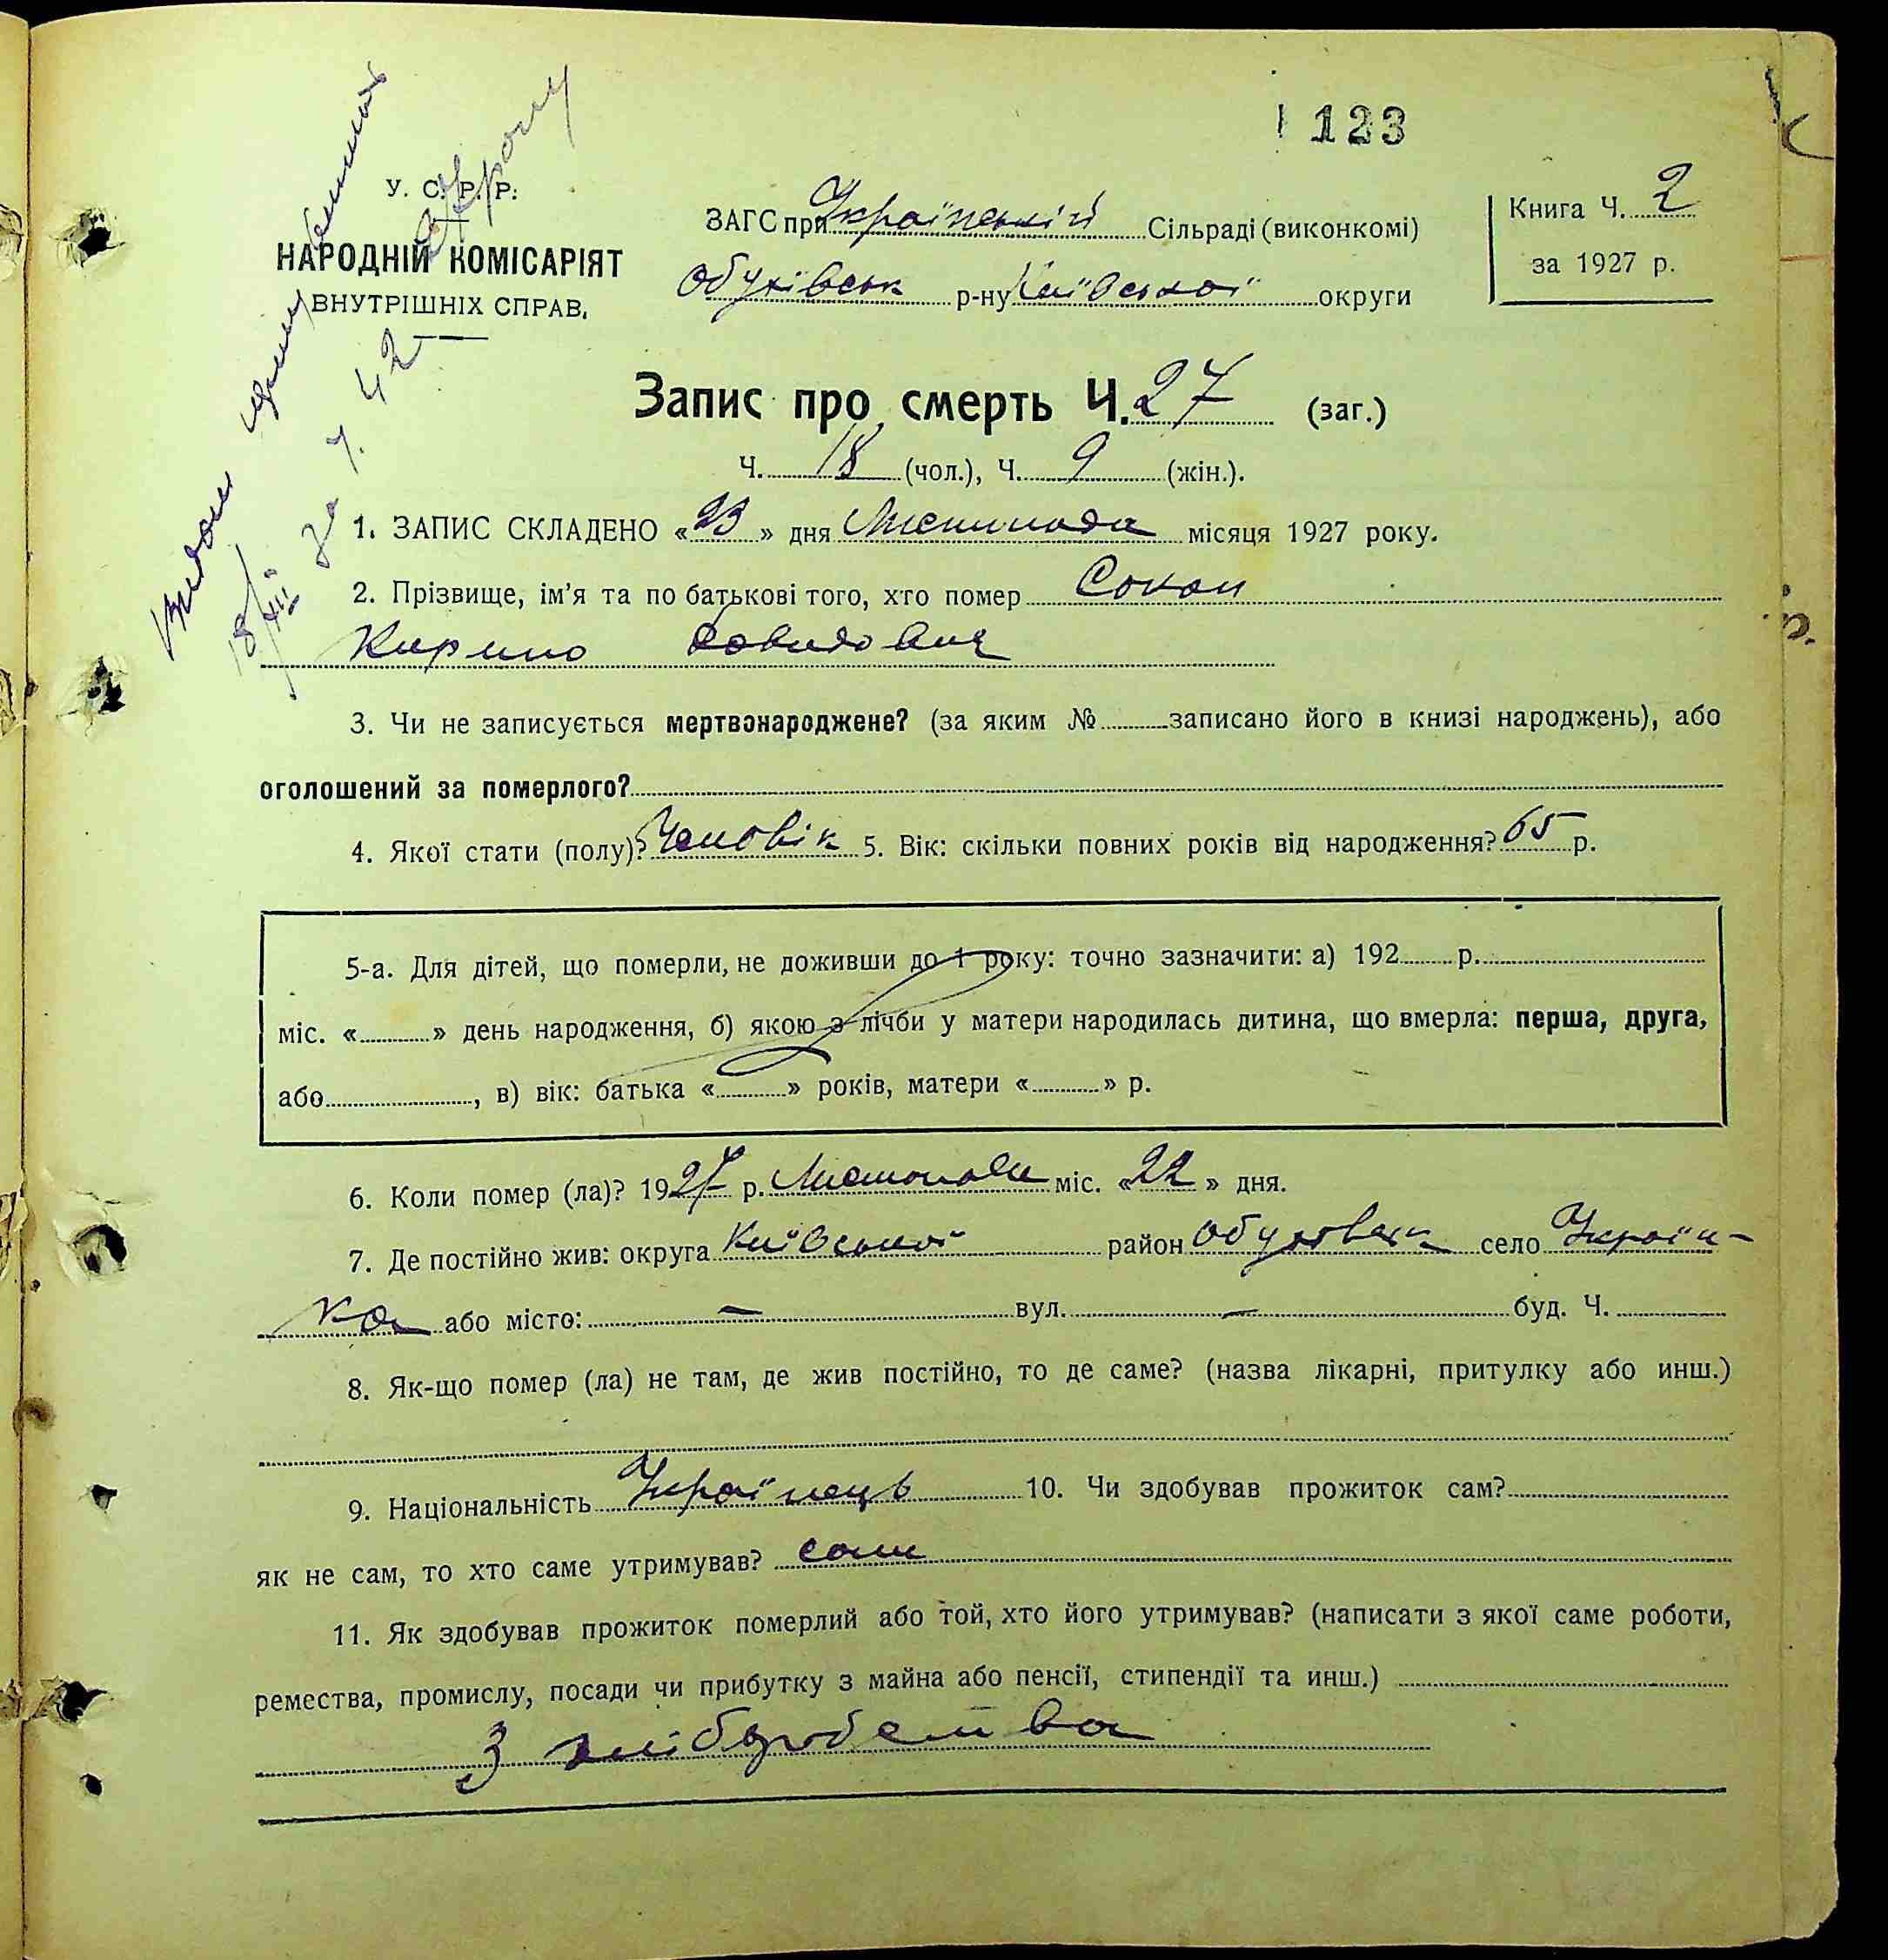 123
У. С. Р. Р.
НАРОДНІЙ КОМІСАРІЯТ
ВНУТРІШНІХ СПРАВ.
ЗАГС при Українській Сільраді (виконкомі)
Обухівськ р-ну Київської округи
Книга Ч. 2
за 1927 р.
за Ч. 42
18/XII
Запис про смерть Ч. 27 (заг.)
Ч. 18 (чол.), Ч. 9 (жін.).
1. ЗАПИС СКЛАДЕНО «23» дня Листопада місяця 1927 року.
2. Прізвище, ім'я та по батькові того, хто помер Сокол
Кирило Давидович
3. Чи не записується мертвонароджене? (за яким № записано його в книзі народжень), або
оголошений за померлого?
4. Якої стати (полу)? Человік 5. Вік: скільки повних років від народження? 65 р.
5-а. Для дітей, що померли, не доживши до 1 року: точно зазначити: а) 192 р.
міс. « » день народження, б) якою з лічби у матери народилась дитина, що вмерла: перша, друга,
або , в) вік: батька « » років, матери « » р.
6. Коли помер (ла)? 1927 р. Листопада міс. «22» дня.
7. Де постійно жив: округа Київської район Обухівськ село Україн-
ка або місто: — вул. — буд. Ч.
8. Як-що помер (ла) не там, де жив постійно, то де саме? (назва лікарні, притулку або инш.)
9. Національність Українець 10. Чи здобував прожиток сам?
як не сам, то хто саме утримував? сам
11. Як здобував прожиток померлий або той, хто його утримував? (написати з якої саме роботи,
ремества, промислу, посади чи прибутку з майна або пенсії, стипендії та инш.)
З хліборобства